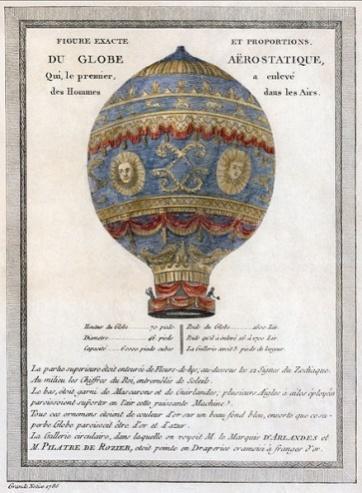 FIGURE EXACTE ET PROPORTIONS.
DU GLOBE AËROSTATIQUE,
Qui, le premier, a enlevé
des Hommes dans les Airs.
Hauteur du Globe 70 pieds
Poids du Globe 1600 Liv.
Diametre 46 pieds
Poids qu'il a enlevé 16 à 1700 Liv.
Capacité 60000 pieds cubes
La Gallerie avoit 3 pieds de largeur.
La partie superieure étoit entourée de Fleurs-de-lys, au-dessous les 12 Signes du Zodiaque.
Au milieu les Chiffres du Roi, entremêlés de Soleils.
Le bas, étoit garni de Mascarons et de Guirlandes; plusieurs Aigles à ailes éployées
paroissoient suporter en l'air cette puissante Machine.
Tous ces ornemens étoient de couleur d'or sur un beau fond bleu, ensorte que ce su-
perbe Globe paroissoit être d'or et d'azur.
La Gallerie circulaire, dans laquelle on voyoit M. le Marquis D'ARLANDES et
M. PILATRE DE ROZIER, étoit peinte en Draperies cramoisi à franges d'or.
1786